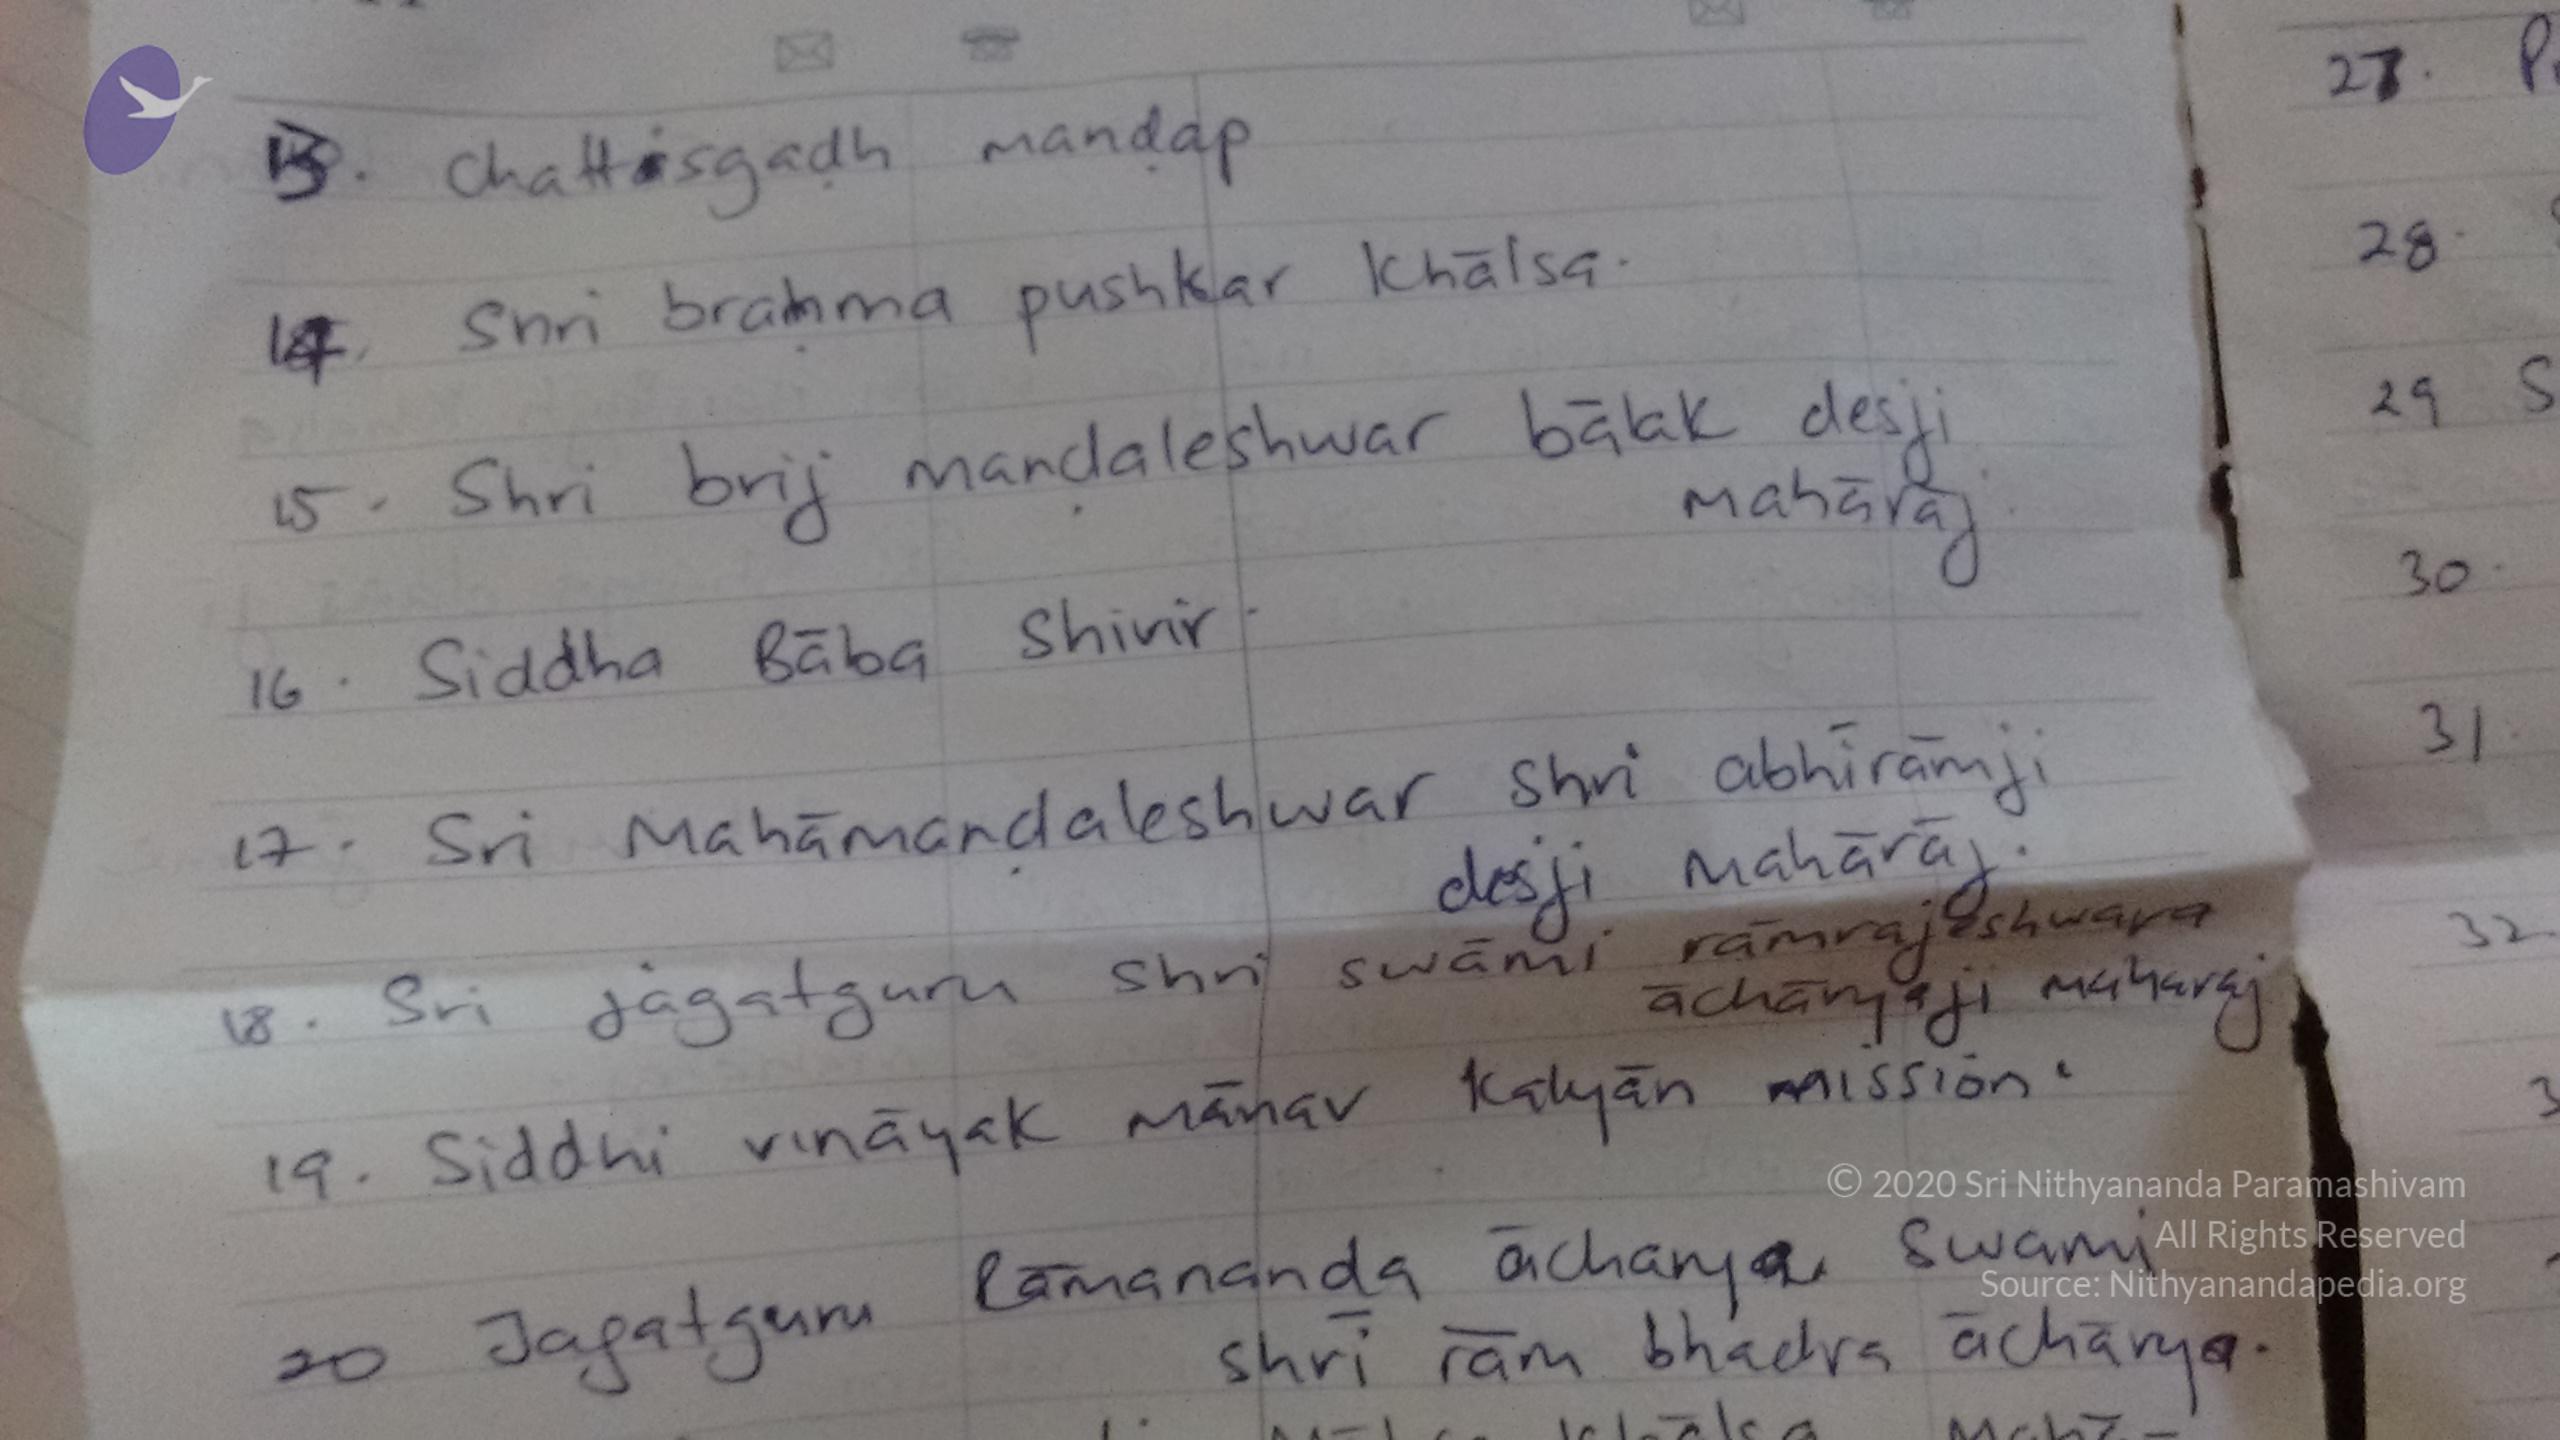 13. Chattisgaḍh manḍap
14. Shri braḥma pushkar Khālsa.
15. Shri brij manḍaleshwar bālak desji
mahārāj.
16. Siddha Bāba Shivir.
17. Sri Mahāmanḍaleshwar Shri abhīrāmji
desji Mahārāj.
18. Sri jagatguru Shri swāmi rāmrajeshwara
āchāryaji maharaj
19. Siddhi vināyak mānav Kalyān mission.
20 Jagatguru Rāmananda āchārya Swami
shrī rām bhadra āchārya.
Khālsa Mahā-
27. P
28.
29 S
30.
31.
32
3
© 2020 Sri Nithyananda Paramashivam
All Rights Reserved
Source: Nithyanandapedia.org